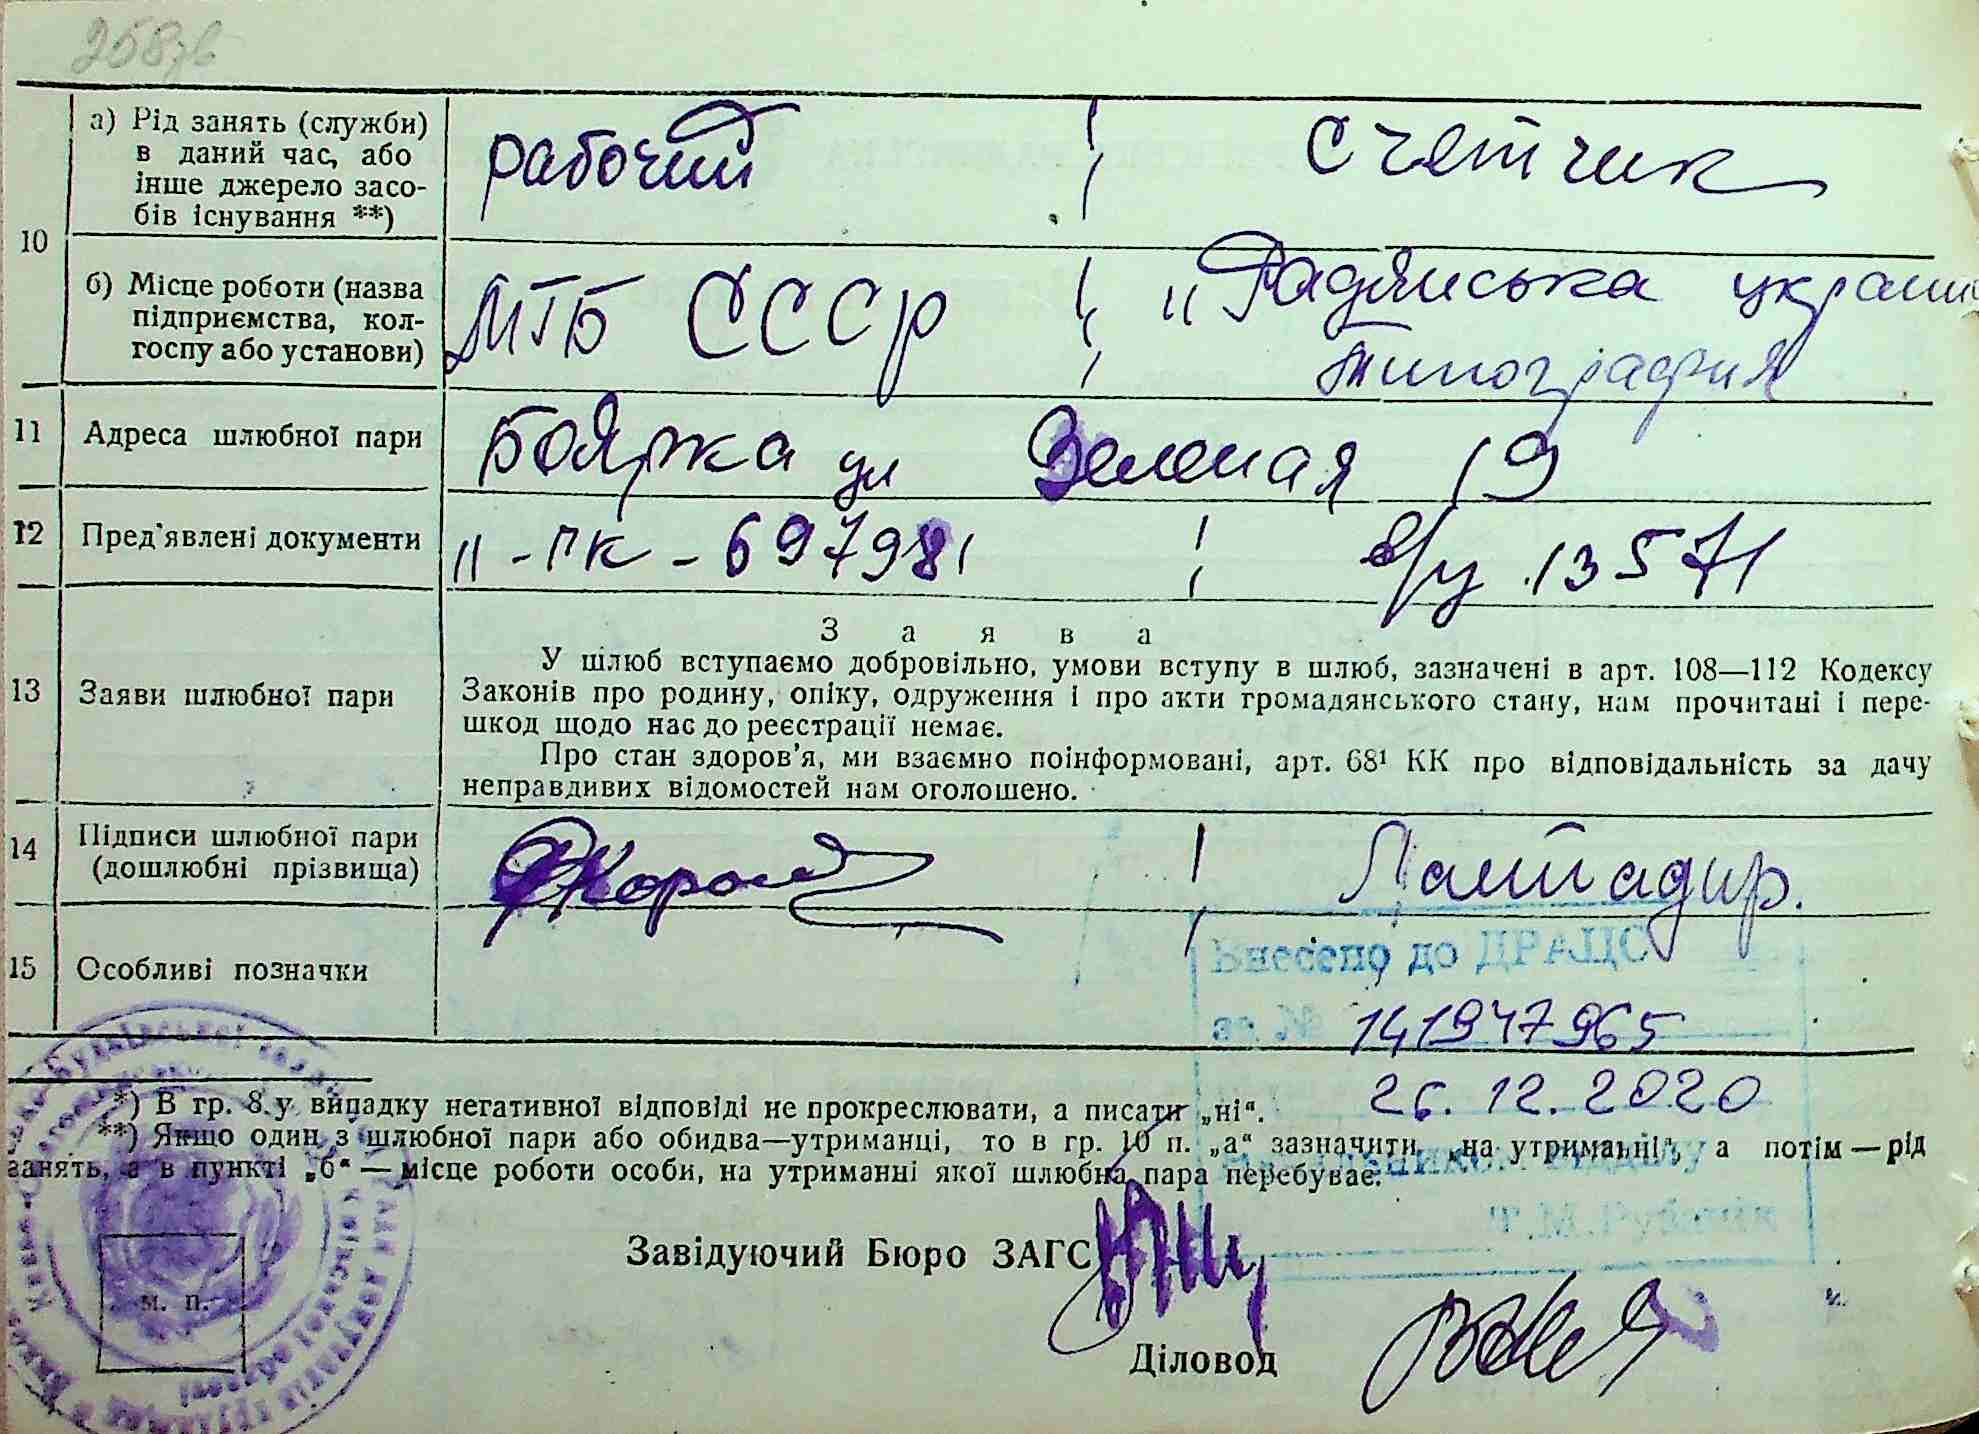 258зв
10
а) Рід занять (служби)
в даний час, або
інше джерело засо-
бів існування **)
рабочий
счетчик
б) Місце роботи (назва
підприємства, кол-
госпу або установи)
МГБ СССР
"Радянська україн
типография
11 Адреса шлюбної пари
Боярка ул Зеленая 19
12 Пред'явлені документи
II-ПК-697981
в/у 13571
Заява
13 Заяви шлюбної пари
У шлюб вступаємо добровільно, умови вступу в шлюб, зазначені в арт. 108—112 Кодексу
Законів про родину, опіку, одруження і про акти громадянського стану, нам прочитані і пере-
шкод щодо нас до реєстрації немає.
Про стан здоров'я, ми взаємно поінформовані, арт. 68¹ КК про відповідальність за дачу
неправдивих відомостей нам оголошено.
14 Підписи шлюбної пари
(дошлюбні прізвища)
15 Особливі позначки
Внесено до ДРАЦС
за № 141947965
26.12.2020
*) В гр. 8 у випадку негативної відповіді не прокреслювати, а писати „ні“.
**) Якщо один з шлюбної пари або обидва—утриманці, то в гр. 10 п. „а“ зазначити „на утриманні“, а потім — рід
занять, а в пункті „б“ — місце роботи особи, на утриманні якої шлюбна пара перебуває.
Т.М.
Завідуючий Бюро ЗАГС
м. п.
Діловод